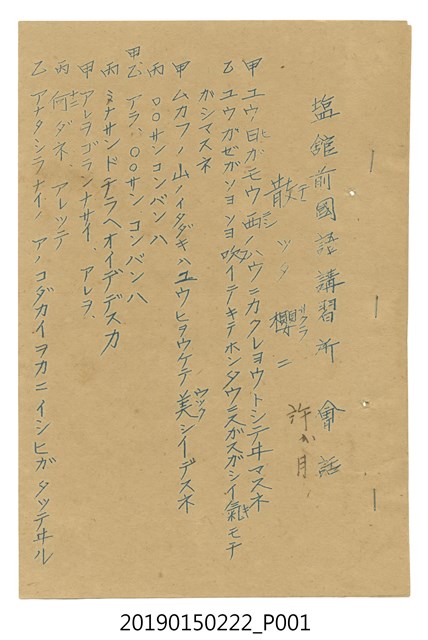 塩館前國語講習所 會話
散ツタ櫻ニ
サクラ
許氏月
甲 ユウ日ガモウ西ノハウニカクレヨウトシテヰマスネ
乙 ユウガゼガソヨソヨ吹イテキテホンタウニスガスガシイ氣モチ
ガシマスネ
甲 ムカフノ山ノイタダキハユウヒヲウケテ美シイデスネ
ウツク
丙 〇〇サンコンバンハ
甲乙 アラ、〇〇サン コンバンハ
丙 ミナサンドチラヘオイデデスカ
甲 アレヲゴランナサイ、アレヲ、
丙 何ダネ アレツテ
ナニ
乙 アナタシラナイノ アノコダカイヲカニイシヒガタツテヰル
20190150222_P001